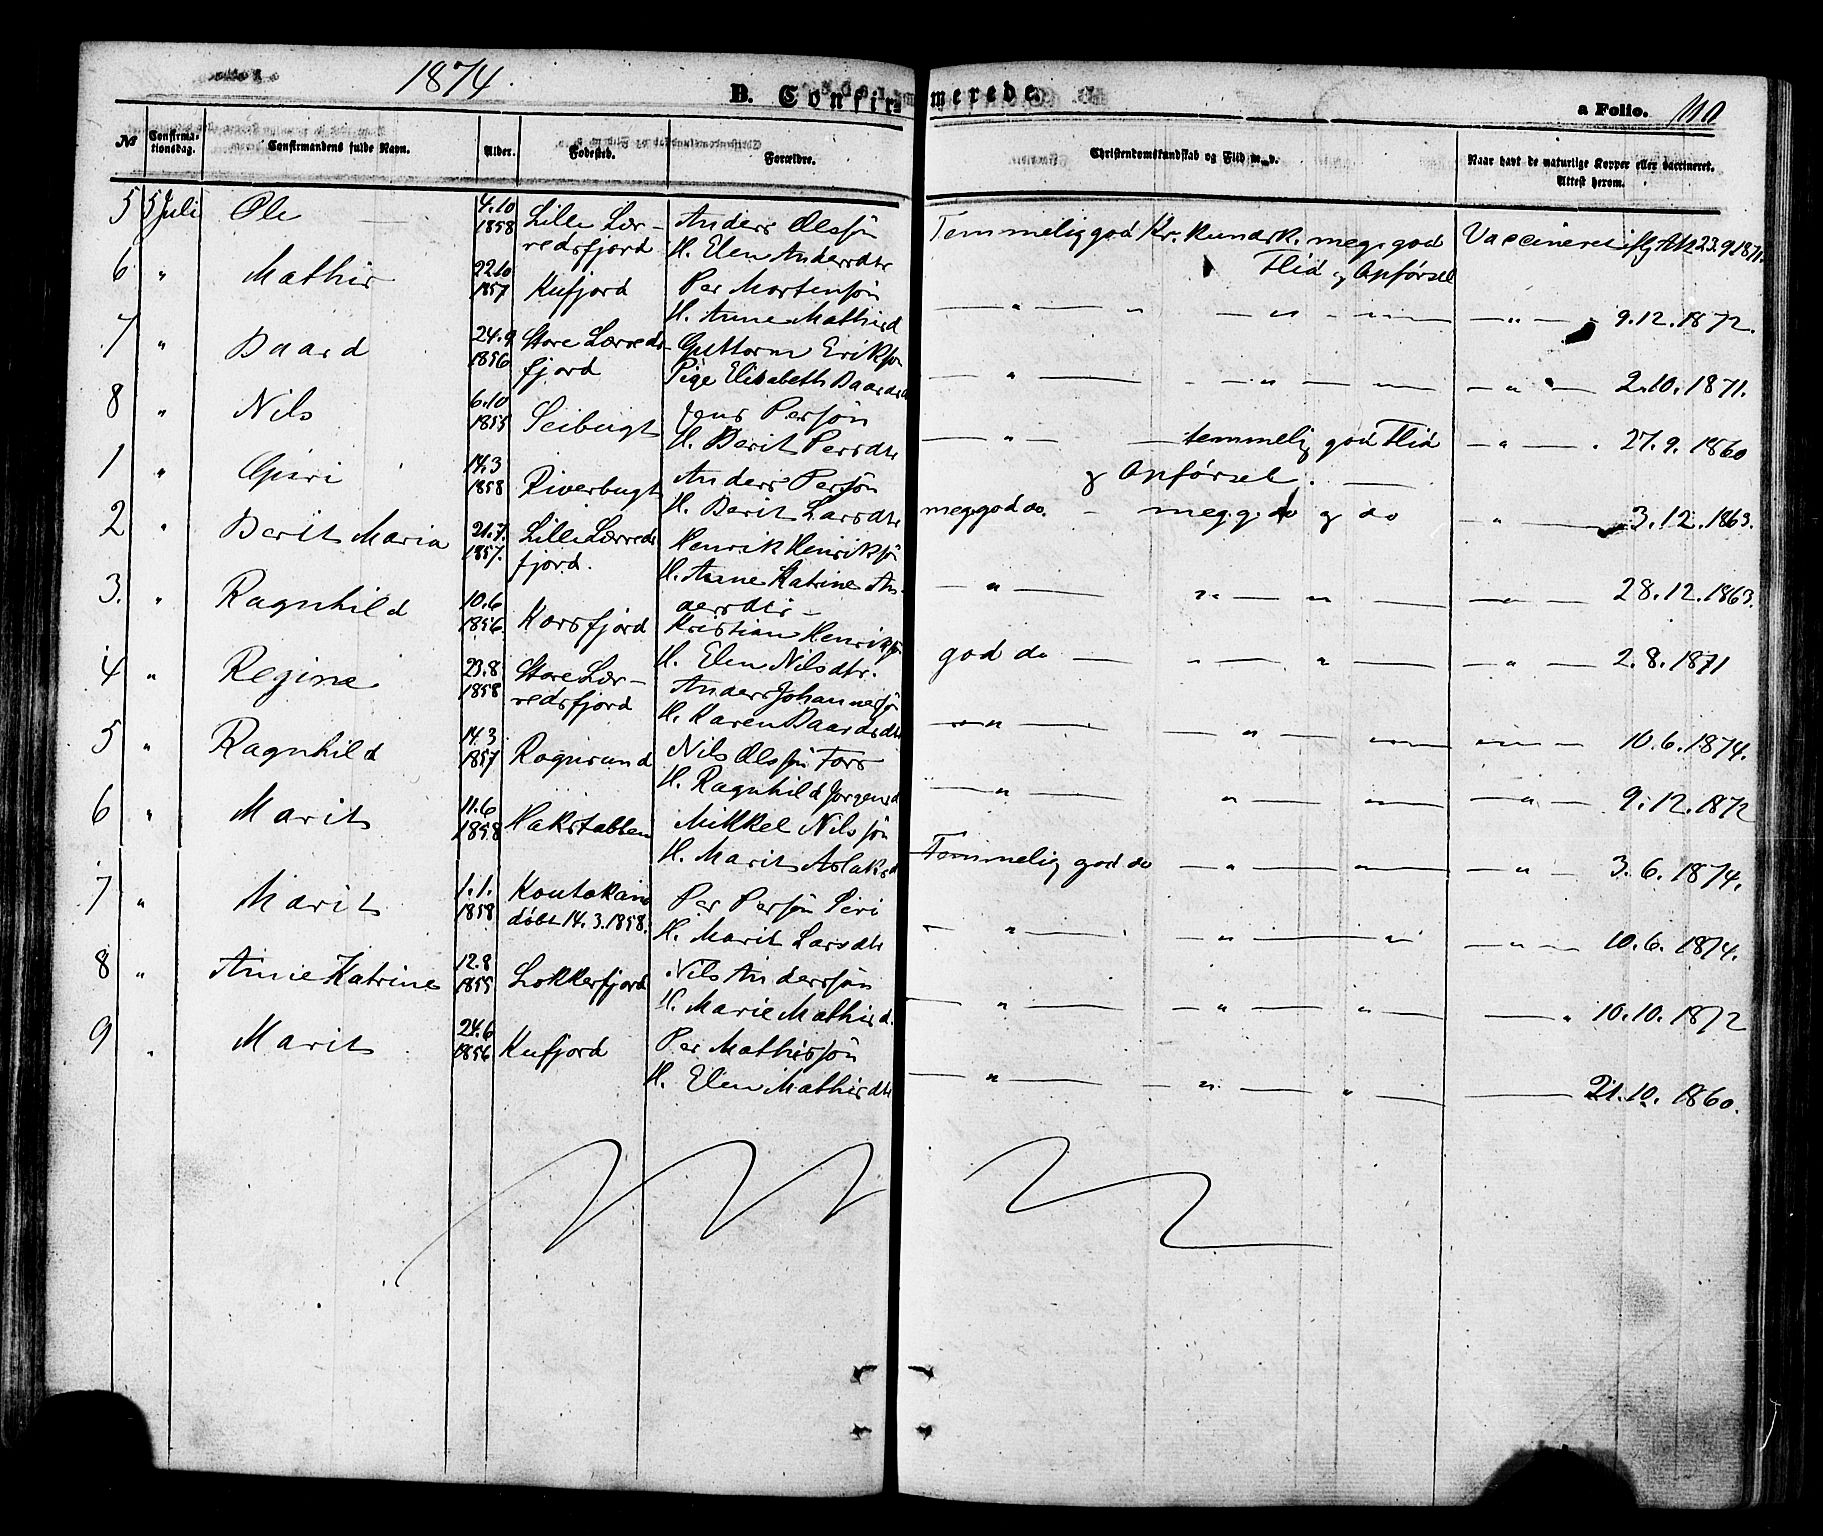 1874.
B. Confirmerede.
a Folio. 110
No Confirmationsdag. Confirmandens fulde Navn. Alder. Fødested. Forældre. Christendomskundskab og Flid m. v. Naar havt de naturlige Kopper eller vaccineret. Attest herom.
5 5 Juli Ole 4.10 1858 Lille Lærredsfjord Anders Olssøn
H. Elen Andersdtr Temmelig god Kr. kundsk. meg. god Flid og Opførsel Vaccineret iflg Att 23.9.1871.
6 " Mathis 22.10 1857 Kufjord Per Mortensøn
H. Anne Mathisd — " — " — " — 9.12.1872.
7 " Baard 24.9 1856 Store Lærredsfjord Guttorm Eriksøn
Pige Elisabeth Baardsd — " — " — " — 2.10.1871.
8 " Nils 6.10 1855 Seibugt Jens Persøn
H. Berit Persdtr — " — temmelig god Flid og Opførsel. — " — 27.9.1860
1 " Guri 14.3 1858 Riverbugt Anders Persøn
H. Berit Larsdtr meg. god do. — meg. g. do og do — " — 3.12.1863.
2 " Berit Maria 21.7. 1857. Lille Lærredsfjord. Henrik Henriksøn
H. Anne Katrine Andersdtr — " — " — " — 28.12.1863.
3. " Ragnhild 10.6 1856. Korsfjord Kristian Henriksøn
H. Elen Nilsdtr. god do — " — " — " — 2.8.1871
4 " Regine 23.8 1858 Store Lærredsfjord Anders Johannesøn
H. Karen Baardsdtr — " — " — " — 10.6.1874.
5 " Ragnhild 14.3 1857 Rognsund Nils Olssøn Fors
H. Ragnhild Jørgensd — " — " — " — 9.12.1872
6 " Marit 11.6 1858 Hakstabben Mikkel Nilssøn
H. Marit Aslaksd Temmelig god do — " — " — 3.6.1874.
7 " Marit 1.1. 1858 Koutokeino døbt 14.3.1858. Per Persøn Siri
H. Marit Larsdtr — " — " — " — 10.6.1874.
8 " Anne Katrine 12.8 1855 Lokkerfjord Nils Anderssøn
H. Marie Mathisd. — " — " — " — 10.10.1872
9 " Marit 24.6 1856 Kufjord Per Mathissøn
H. Elen Mathisdtr — " — " — " — 21.10.1860.